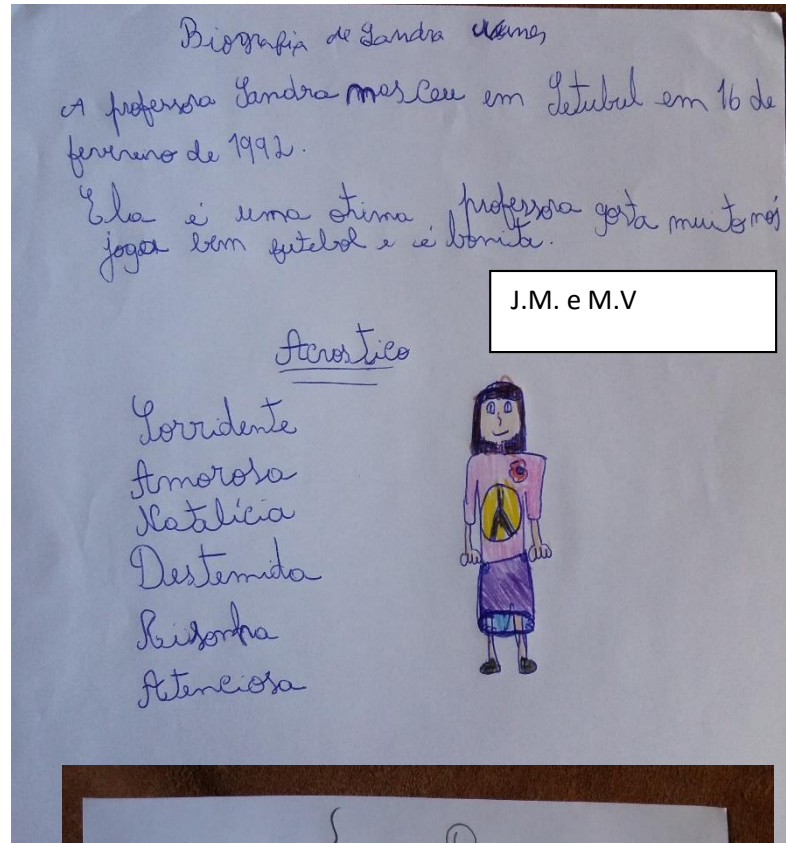 Biografia de Sandra
A professora Sandra nasceu em Setubul em 16 de
fevereiro de 1992.
Ela é uma otima professora gosta muito nós
joga bem futebol e é bonita.
J.M. e M.V
Acrostico
Sorridente
Amorosa
Natalícia
Destemida
Risonha
Atenciosa